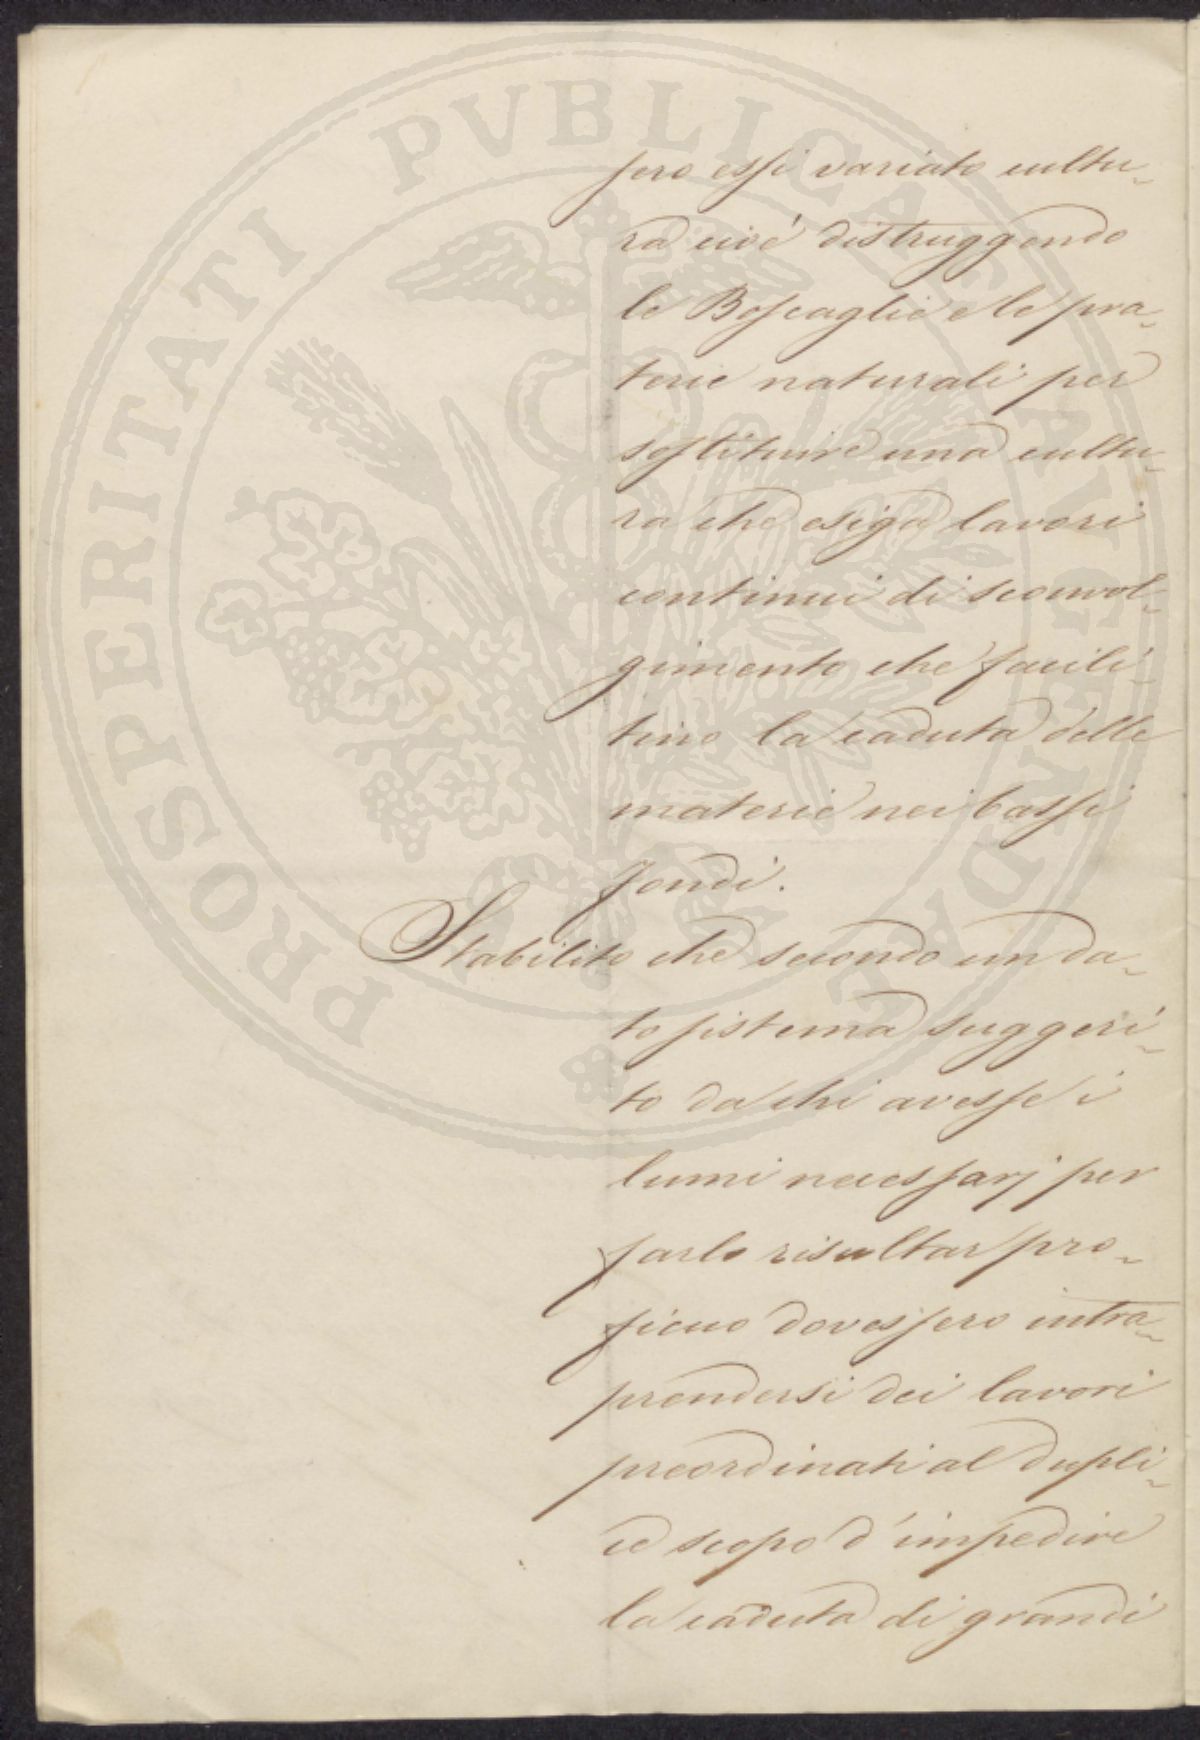 PROSPERITATI PVBLICAE AVGENDAE
sero essi variato cultu-
ra cioè distruggendo
le Boscaglie e le pra-
terie naturali per
sostituire una cultu-
ra che esiga lavori
continui di sconvol-
gimento che facili-
tino la caduta delle
materie nei bassi
fondi.
Stabilito che secondo un da-
to sistema suggeri-
to da chi avesse i
lumi necessarj per
farlo risultar pro-
ficuo dovessero intra-
prendersi dei lavori
preordinati al dupli-
ce scopo d'impedire
la caduta di grandi